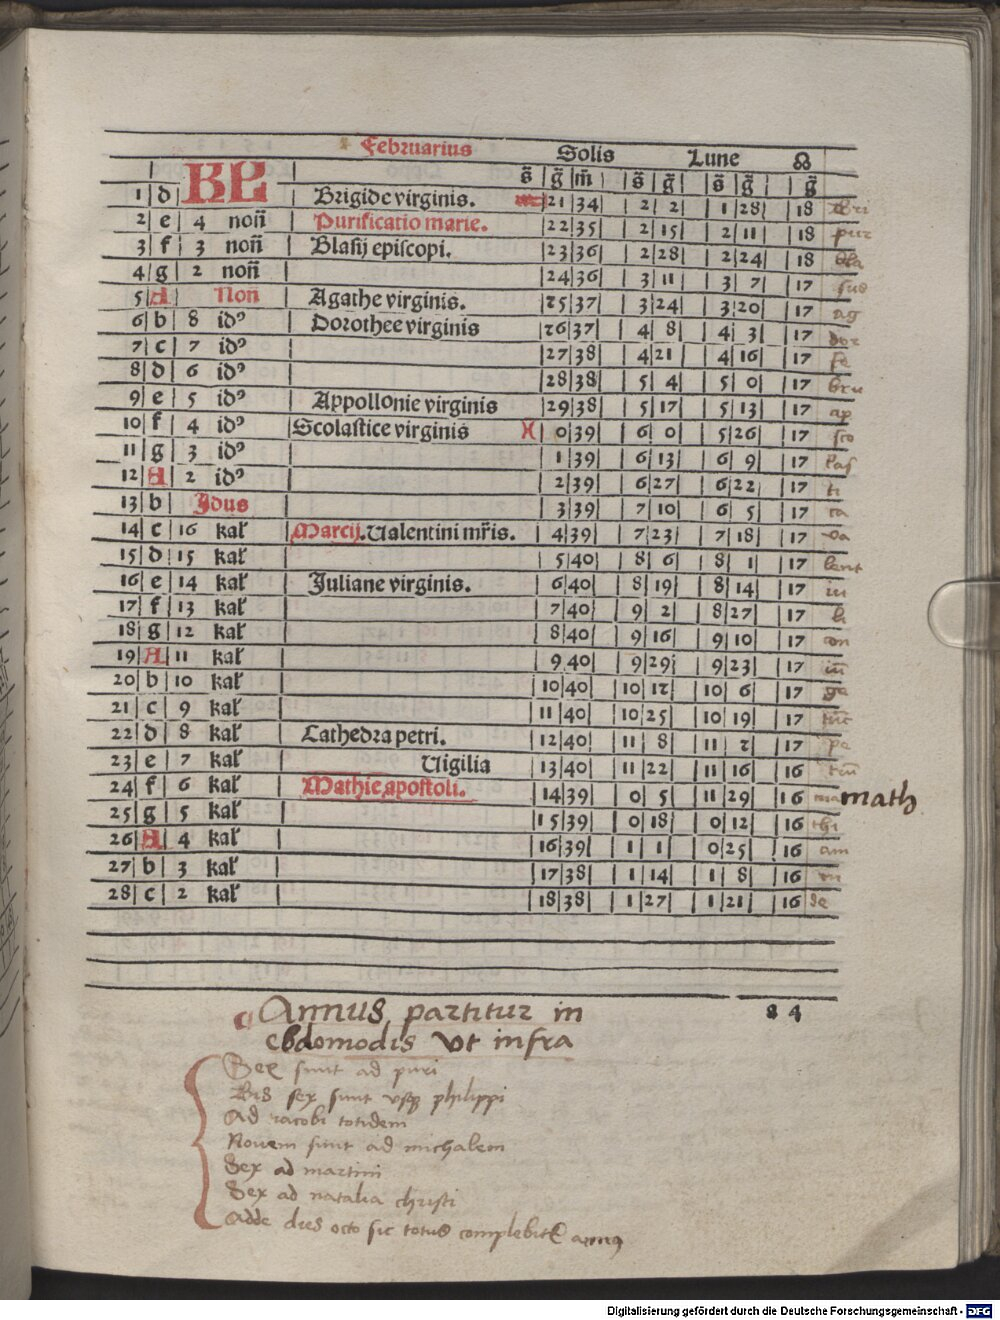 Februarius Solis Lune ☊
KL s̄ g̃ m̃ s̄ g̃ s̄ g̃ g̃
1 d Brigide virginis. 21 34 2 2 1 28 18 bri
2 e 4 non̄ Purificatio marie. 22 35 2 15 2 11 18 pur
3 f 3 non̄ Blasij episcopi. 23 36 2 28 2 24 18 bla
4 g 2 non̄ 24 36 3 11 3 7 17 sus
5 A Non̄ Agathe virginis. 25 37 3 24 3 20 17 ag
6 b 8 idꝰ Dorothee virginis 26 37 4 8 4 3 17 dor
7 c 7 idꝰ 27 38 4 21 4 16 17 fe
8 d 6 idꝰ 28 38 5 4 5 0 17 bru
9 e 5 idꝰ Appollonie virginis 29 38 5 17 5 13 17 ap
10 f 4 idꝰ Scolastice virginis ♓ 0 39 6 0 5 26 17 sco
11 g 3 idꝰ 1 39 6 13 6 9 17 las
12 A 2 idꝰ 2 39 6 27 6 22 17 ti
13 b Idus 3 39 7 10 6 5 17 ca
14 c 16 kal̄ Marcij. Valentini mr̄is. 4 39 7 23 7 18 17 va
15 d 15 kal̄ 5 40 8 6 8 1 17 lent
16 e 14 kal̄ Juliane virginis. 6 40 8 19 8 14 17 iu
17 f 13 kal̄ 7 40 9 2 8 27 17 li
18 g 12 kal̄ 8 40 9 16 9 10 17 con
19 A 11 kal̄ 9 40 9 29 9 23 17 iū
20 b 10 kal̄ 10 40 10 12 10 6 17 ge
21 c 9 kal̄ 11 40 10 25 10 19 17 tūc
22 d 8 kal̄ Cathedra petri. 12 40 11 8 11 2 17 pe
23 e 7 kal̄ Vigilia 13 40 11 22 11 16 16 trū
24 f 6 kal̄ Mathie apostoli. 14 39 0 5 11 29 16 ma math
25 g 5 kal̄ 15 39 0 18 0 12 16 thi
26 A 4 kal̄ 16 39 1 1 0 25 16 am
27 b 3 kal̄ 17 38 1 14 1 8 16 in
28 c 2 kal̄ 18 38 1 27 1 21 16 de
a 4
Annus partitur in
ebdomodis vt infra
Sex sunt ad puri
Bis sex sunt vsqȝ philippi
Ad iacobi totidem
Novem sunt ad michalem
Sex ad martini
Sex ad natalia christi
Adde dies octo sic totus complebitr annꝰ
Digitalisierung gefördert durch die Deutsche Forschungsgemeinschaft - DFG